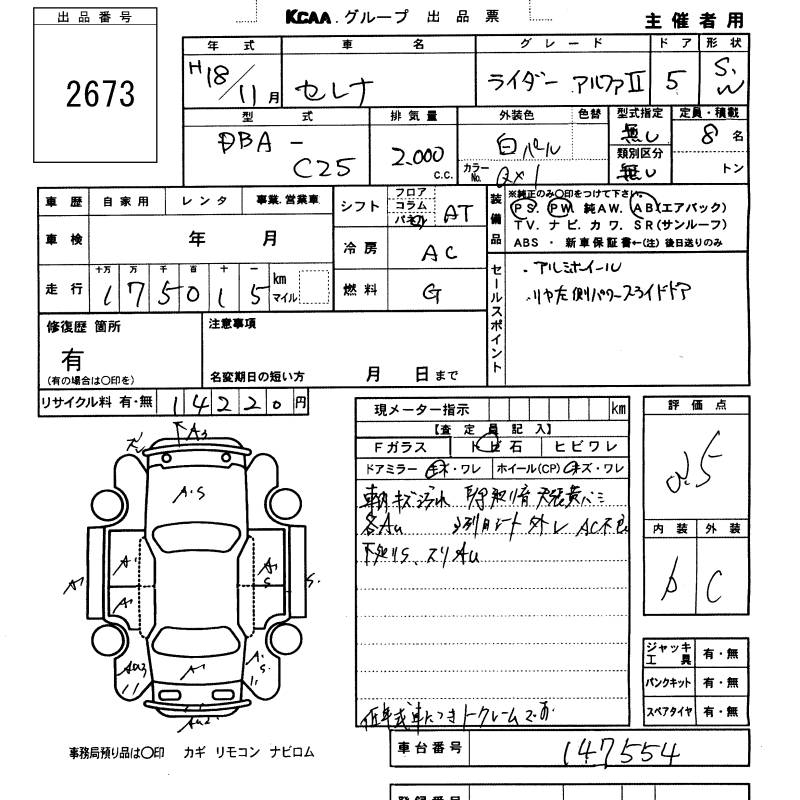 出品番号
KCAA.グループ 出品票
主催者用
2673
年式 車名 グレード ドア 形状
H18/11月 セレナ ライダー アルファII 5 S.W
型式 排気量 外装色 色替 型式指定 定員・積載
DBA-C25 2.000 c.c. 白パール 無し 8名
カラーNo. QX1 類別区分 無し トン
車歴 自家用 レンタ 事業.営業車
シフト フロア コラム パネル AT
装備品 ※純正のみ〇印をつけて下さい。
PS. PW. 純AW. AB(エアバック)
TV. ナビ. カワ. SR(サンルーフ)
ABS・新車保証書←(注)後日送りのみ
車検 年 月
冷房 AC
走行 十万 万 千 百 十 一
175015 km マイル
燃料 G
セールスポイント
・アルミホイール
・リヤ左側パワースライドドア
修復歴 箇所
有
(有の場合は〇印を)
注意事項
名変期日の短い方 月 日まで
リサイクル料 有・無 14220円
現メーター指示 km
【査定員記入】
Fガラス トビ石 ヒビワレ
ドアミラー キズ・ワレ ホイール(CP) キズ・ワレ
車内キズ汚れ
各AU 3列目シート外し AC不良
下廻りS、スリAU
低年式車につきノークレームで
評価点
内装 外装
C
ジャッキ工具 有・無
パンクキット 有・無
スペアタイヤ 有・無
A3
A.S
A1
A1
A1
A S
S.
AU3
A1
A.S
AU2
事務局預り品は〇印 カギ リモコン ナビロム
車台番号 147554
登録番号